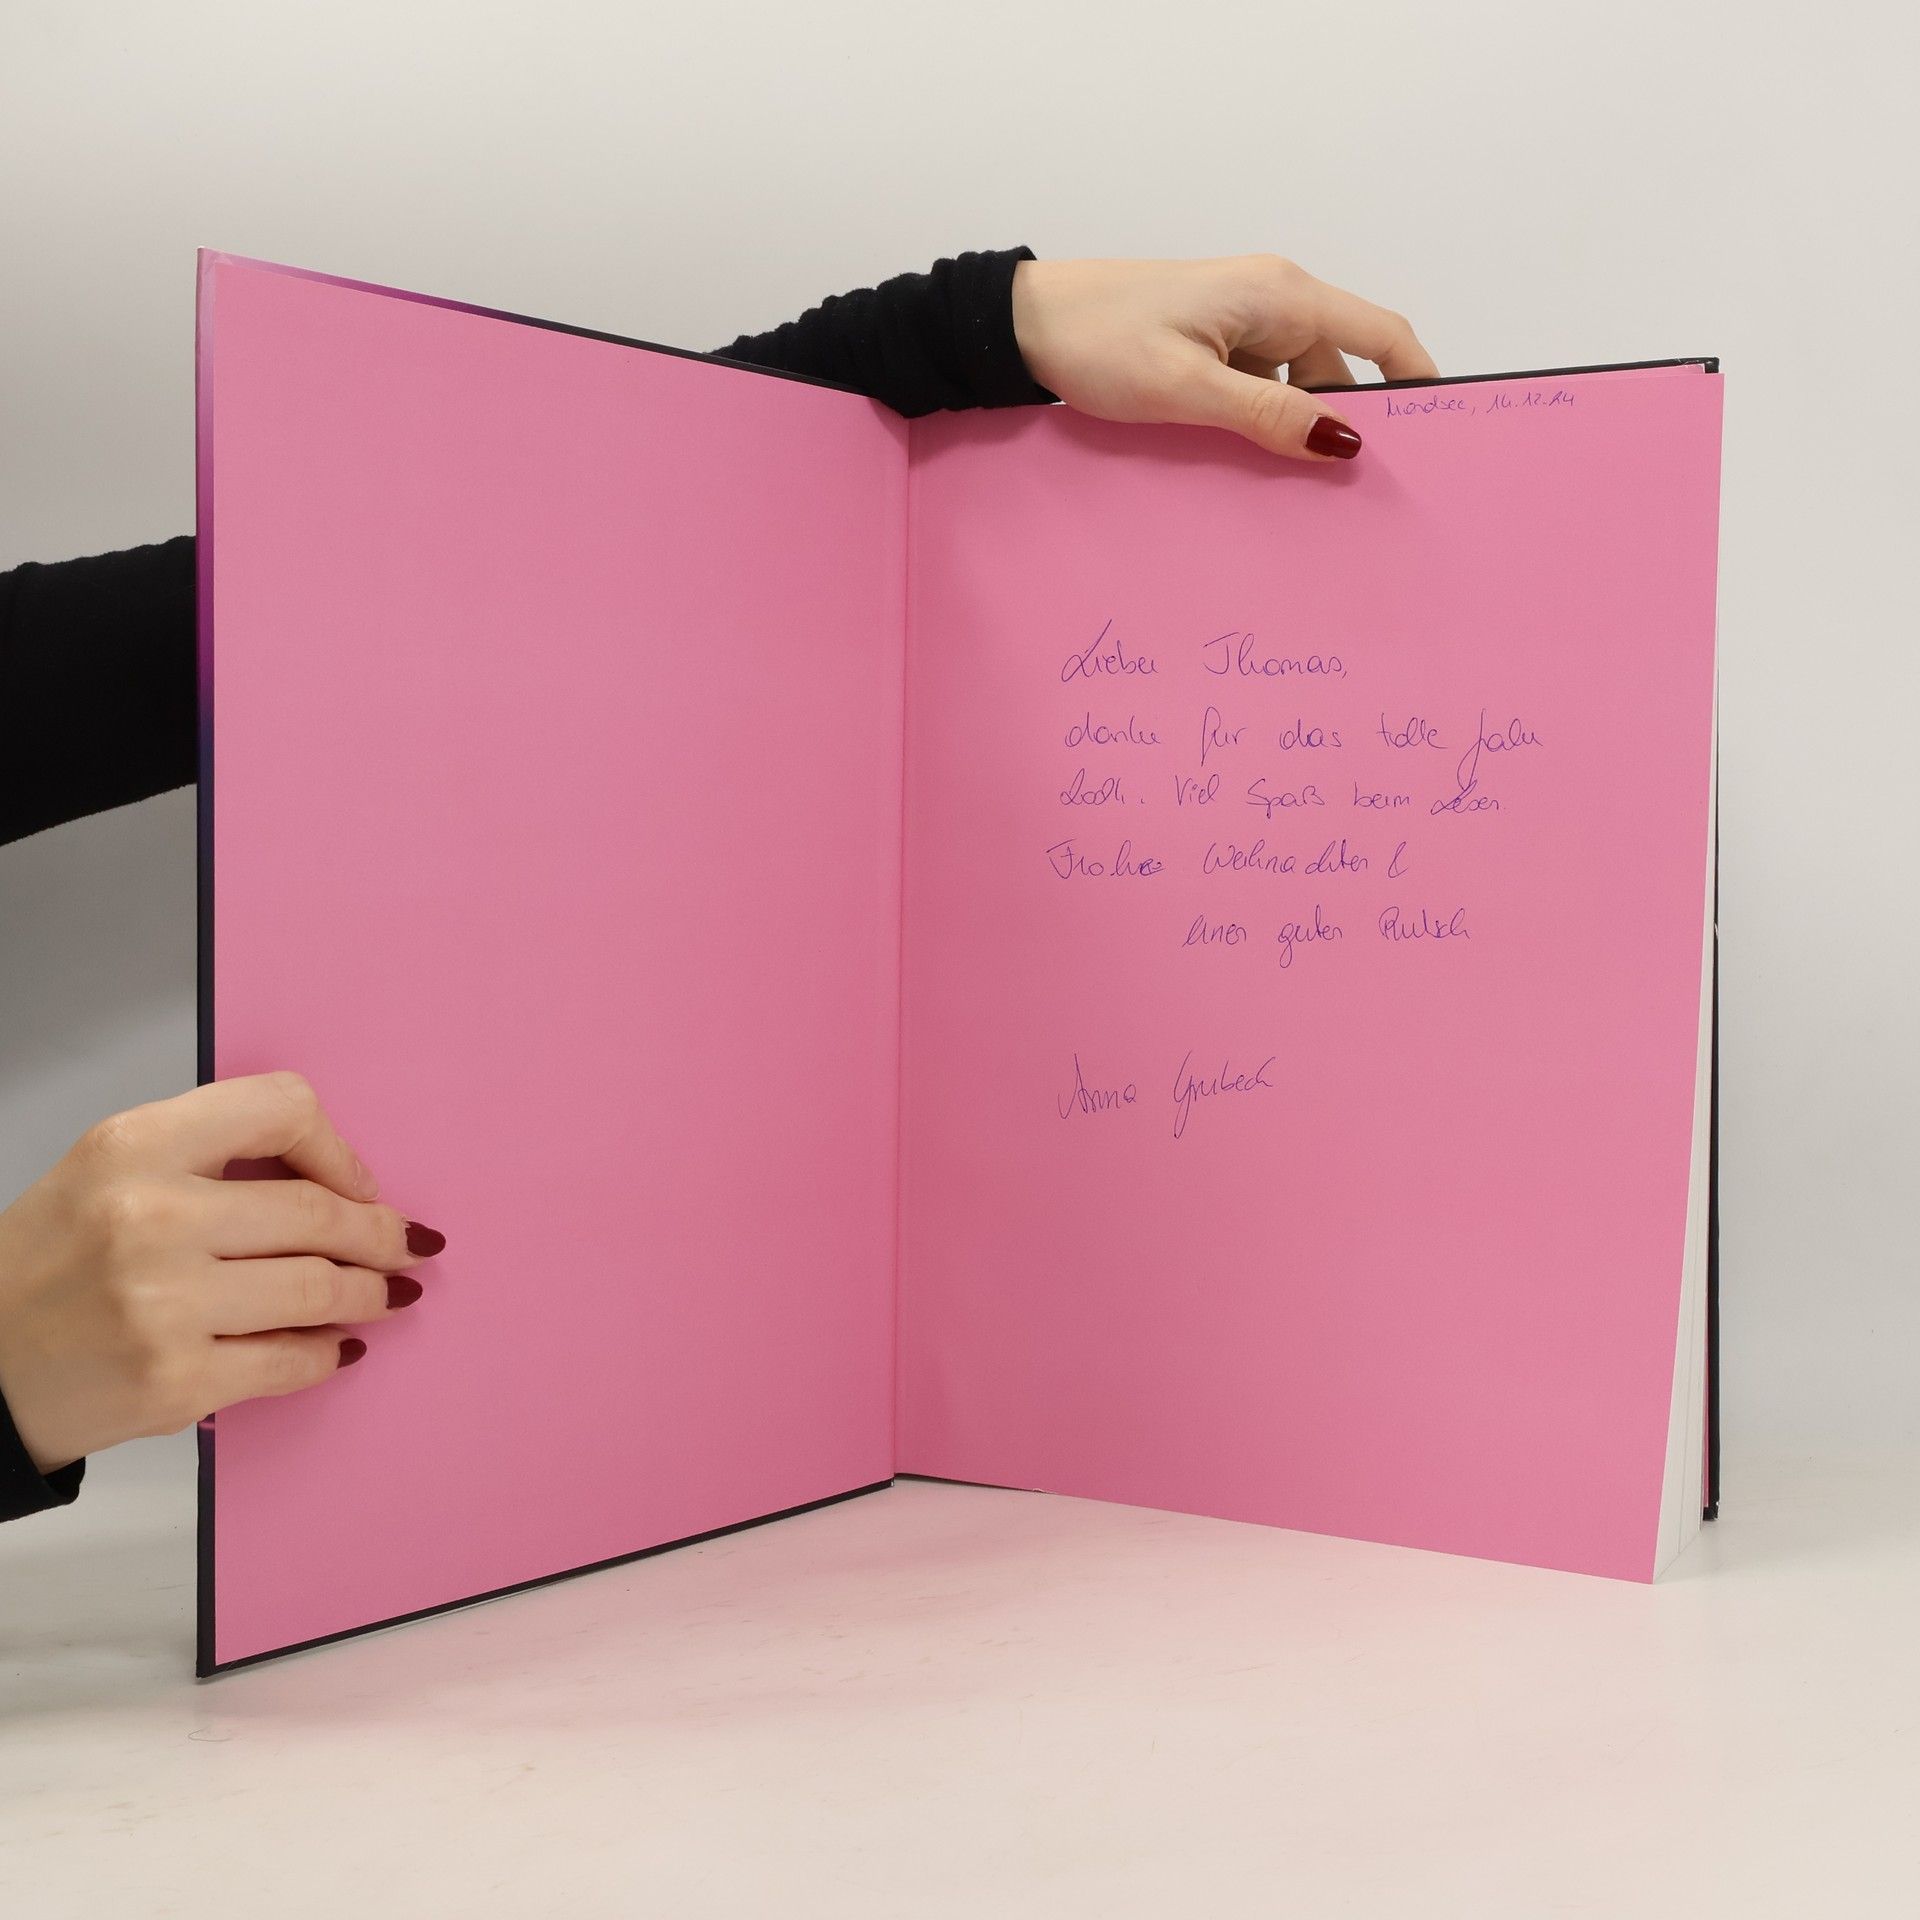 Mondsee, 14.12.24
Lieber Thomas,
danke für das tolle Jahr
2024. Viel Spaß beim Lesen.
Frohe Weihnachten &
einen guten Rutsch
Anna Grubeck